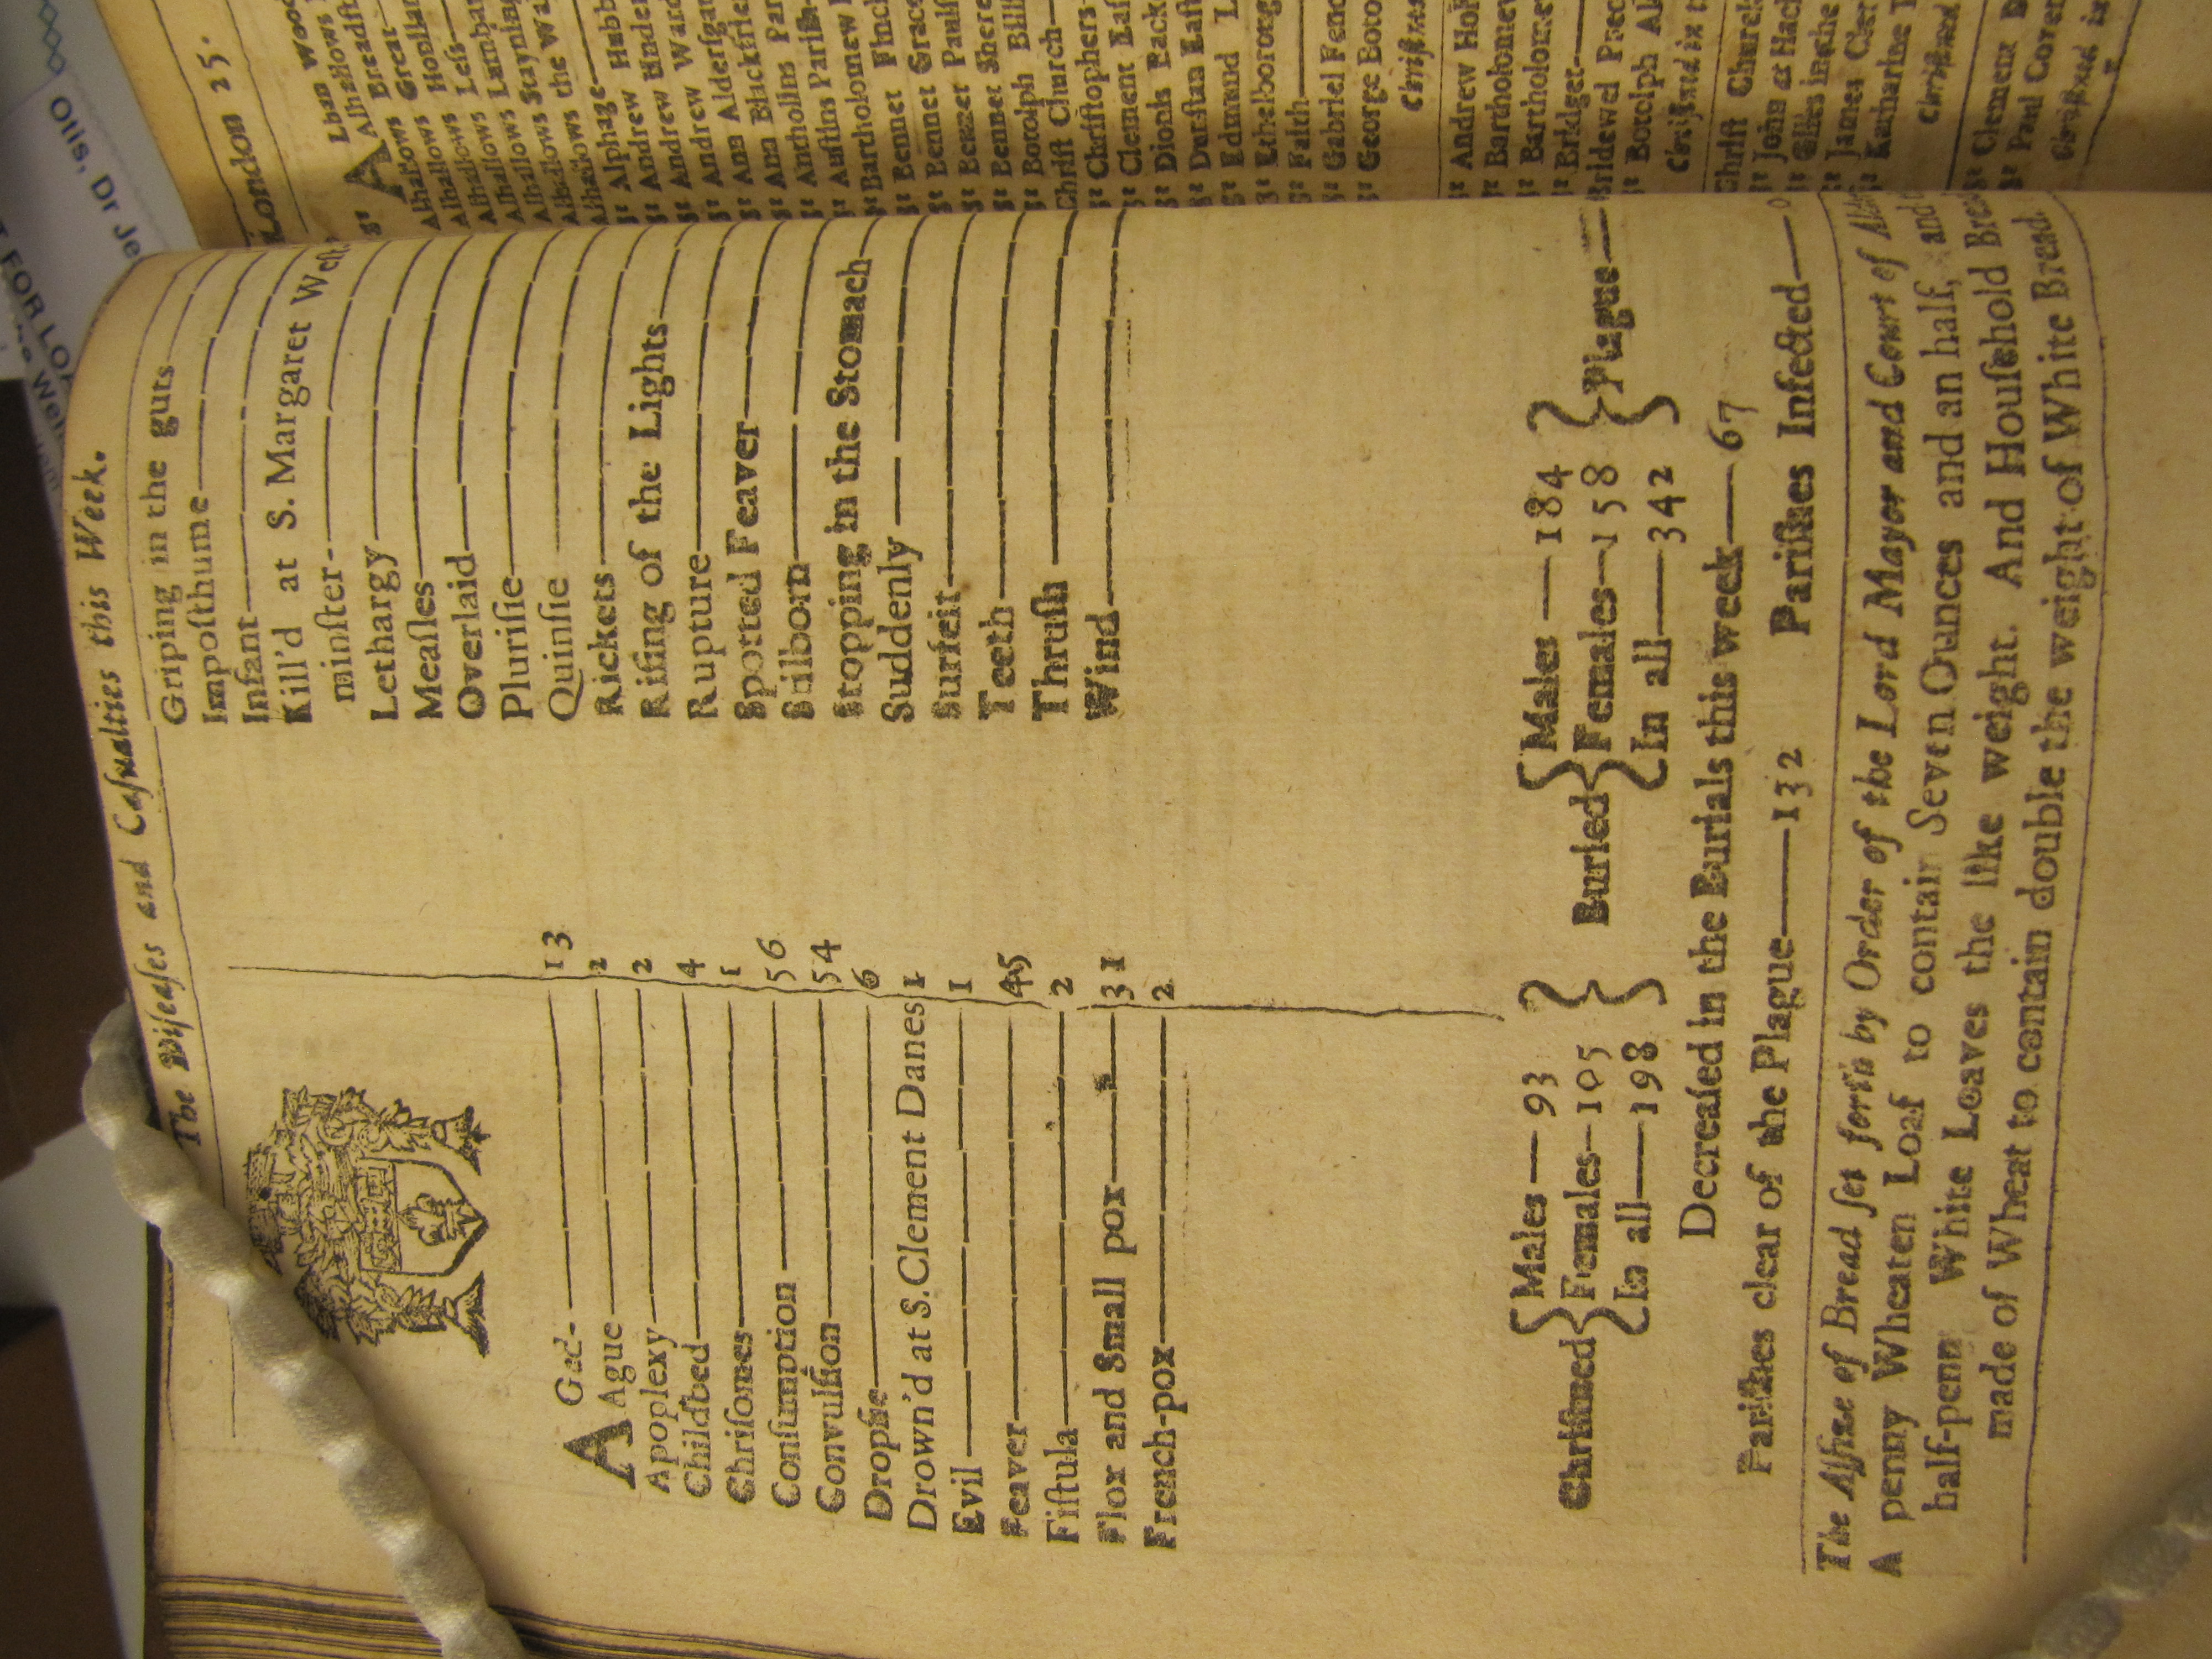 The Diſeaſes and Caſualties this Week.
AGed- 13
Ague 2
Apoplexy 2
Childbed 4
Chriſomes 1
Conſumption 56
Convulſion 54
Dropſie 6
Drown'd at S. Clement Danes 1
Evil 1
Feaver 45
Fiſtula 2
Flox and Small pox 31
French-pox 2
Griping in the guts
Impoſthume
Infant
Kill'd at S. Margaret Weſt
minſter
Lethargy
Meaſles
Overlaid
Pluriſie
Quinſie
Rickets
Riſing of the Lights
Rupture
Spotted Feaver
Stilborn
Stopping in the Stomach
Suddenly
Surfeit
Teeth
Thruſh
Wind
Chriſtned { Males — 93 Females — 105 In all — 198 }
Buried { Males — 184 Females — 158 In all — 342 } Plague —
Decreaſed in the Burials this week — 67
Pariſhes clear of the Plague — 132 Pariſhes Infected — 0
The Aſſize of Bread ſet forth by Order of the Lord Mayor and Court of
A penny Wheaten Loaf to contain Seven Ounces and an half, and
half-penn White Loaves the like weight. And Houſehold
made of Wheat to contain double the weight of White Bread.
London 25.
ALban
Alhallows
Breadſt
Alhallows Great
Alhallows
Alhallows Leſs
Alhallows Lumbar
Alhallows Staynin
Alhallows the Wa
Alhallows
St Alphage
St Andrew Hubb
St Andrew Under
St Andrew Ward
St Ann Alderſga
St Ann Blackfrie
St Antholins Par
St Auſtins Pariſh
St Bartholomew
St Bennet Finch
St Bennet Grace
St Bennet Paulſ
St Bennet Shere
St Botolph Bill
Chriſt Church
St Chriſtophers
St Clement Eaſ
St Dionis Back
St Dunſtan Eaſt
St Edmund L
St Ethelboroug
St Faith
St Gabriel Fenc
St George Boto
Chriſtned
St Andrew Hol
St Bartholomew
St Bartholome
St Bridget
Bridewel Prec
St Botolph Al
Chriſtned in t
Chriſt Church
St John at Hac
St Giles
St James Cler
St Katharine
Chriſtned
St Clement D
St Paul Coven
Chriſtned in
Otis, Dr Je